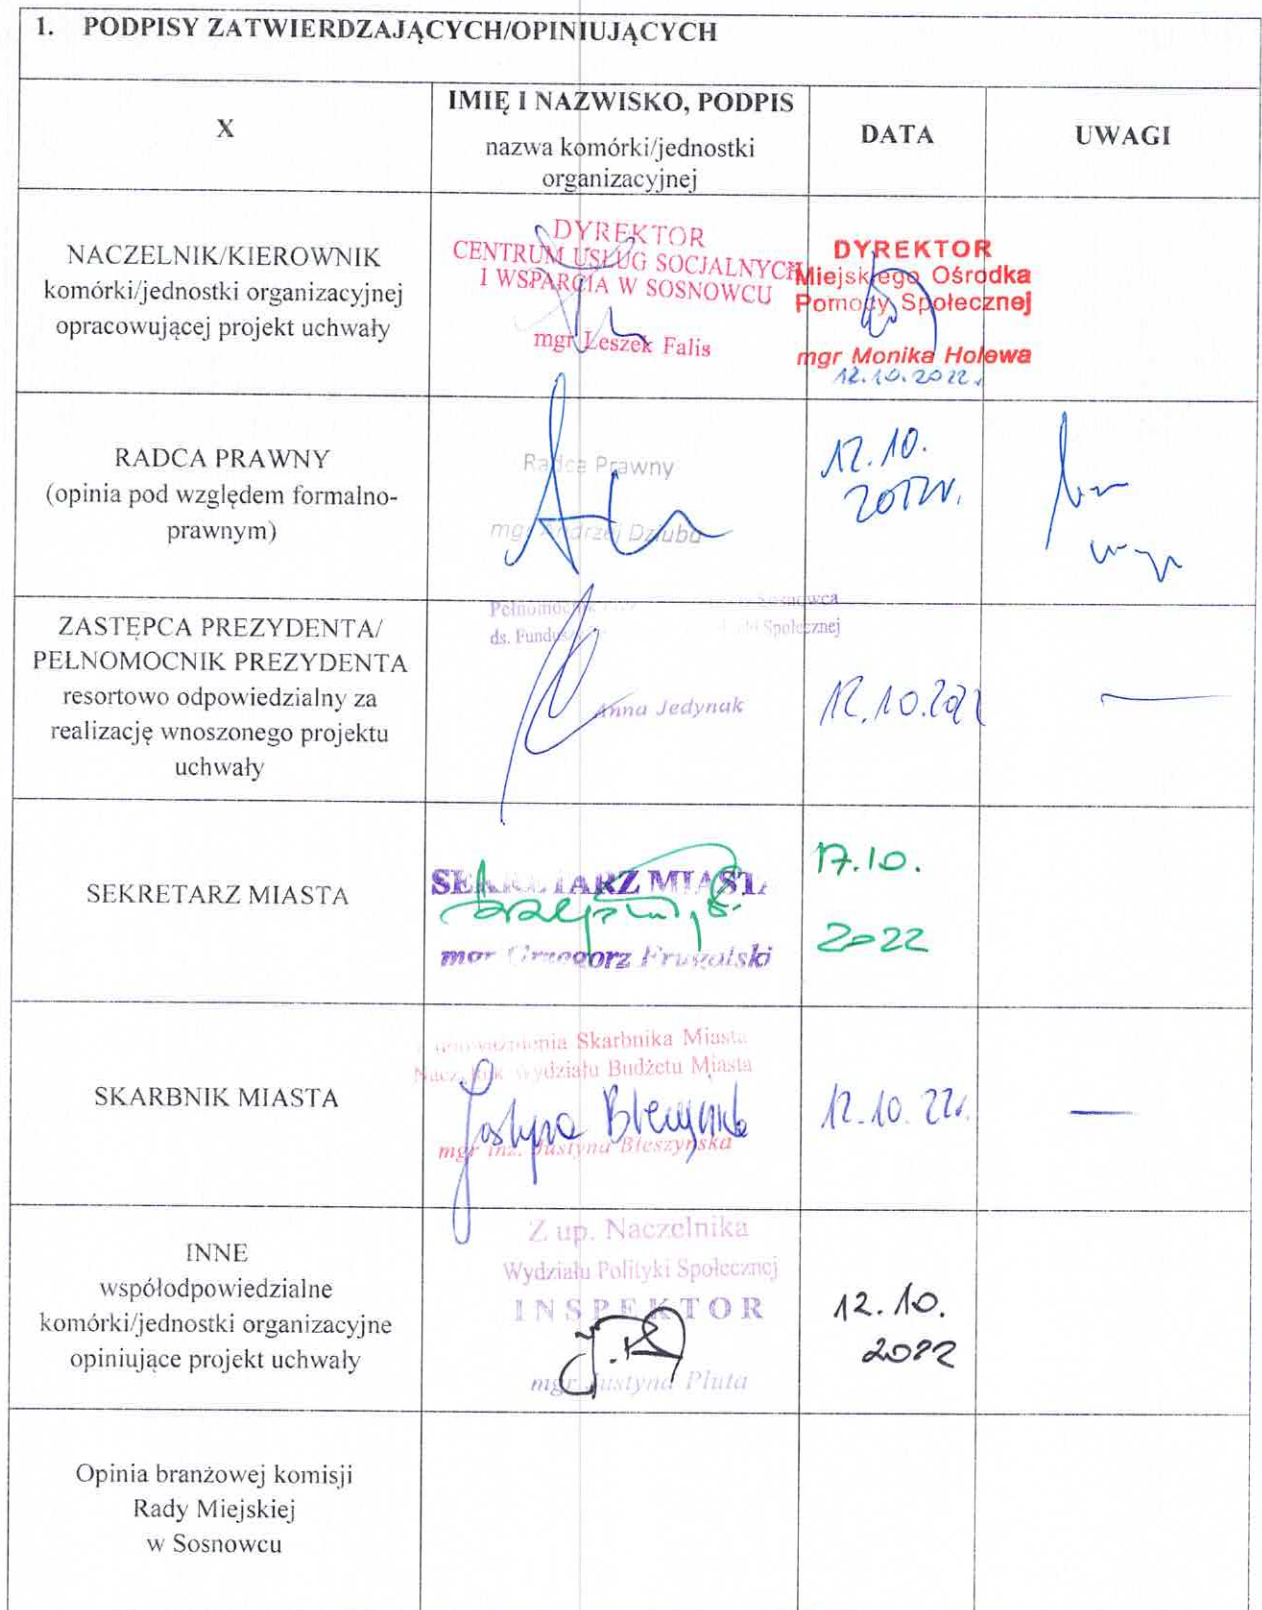 1. PODPISY ZATWIERDZAJĄCYCH/OPINIUJĄCYCH
X
IMIĘ I NAZWISKO, PODPIS
nazwa komórki/jednostki
organizacyjnej
DATA
UWAGI
NACZELNIK/KIEROWNIK
komórki/jednostki organizacyjnej
opracowującej projekt uchwały
DYREKTOR
CENTRUM USŁUG SOCJALNYCH
I WSPARCIA W SOSNOWCU
mgr Leszek Falis
DYREKTOR
Miejskiego Ośrodka
Pomocy Społecznej
mgr Monika Holewa
12.10.2022.
RADCA PRAWNY
(opinia pod względem formalno-
prawnym)
Radca Prawny
mgr Andrzej Dziuba
12.10.
ZASTĘPCA PREZYDENTA/
PEŁNOMOCNIK PREZYDENTA
resortowo odpowiedzialny za
realizację wnoszonego projektu
uchwały
Pełnomocnik Sosnowca
ds. Społecznej
Anna Jedynak
12.10.2022
SEKRETARZ MIASTA
SEKRETARZ MIASTA
mgr Grzegorz Frugalski
17.10.
2022
SKARBNIK MIASTA
Z upoważnienia Skarbnika Miasta
Naczelnik Wydziału Budżetu Miasta
mgr inż. Justyna Błeszyńska
12.10.22r.
INNE
współodpowiedzialne
komórki/jednostki organizacyjne
opiniujące projekt uchwały
Z up. Naczelnika
Wydziału Polityki Społecznej
INSPEKTOR
mgr Justyna Pluta
12.10.
2022
Opinia branżowej komisji
Rady Miejskiej
w Sosnowcu